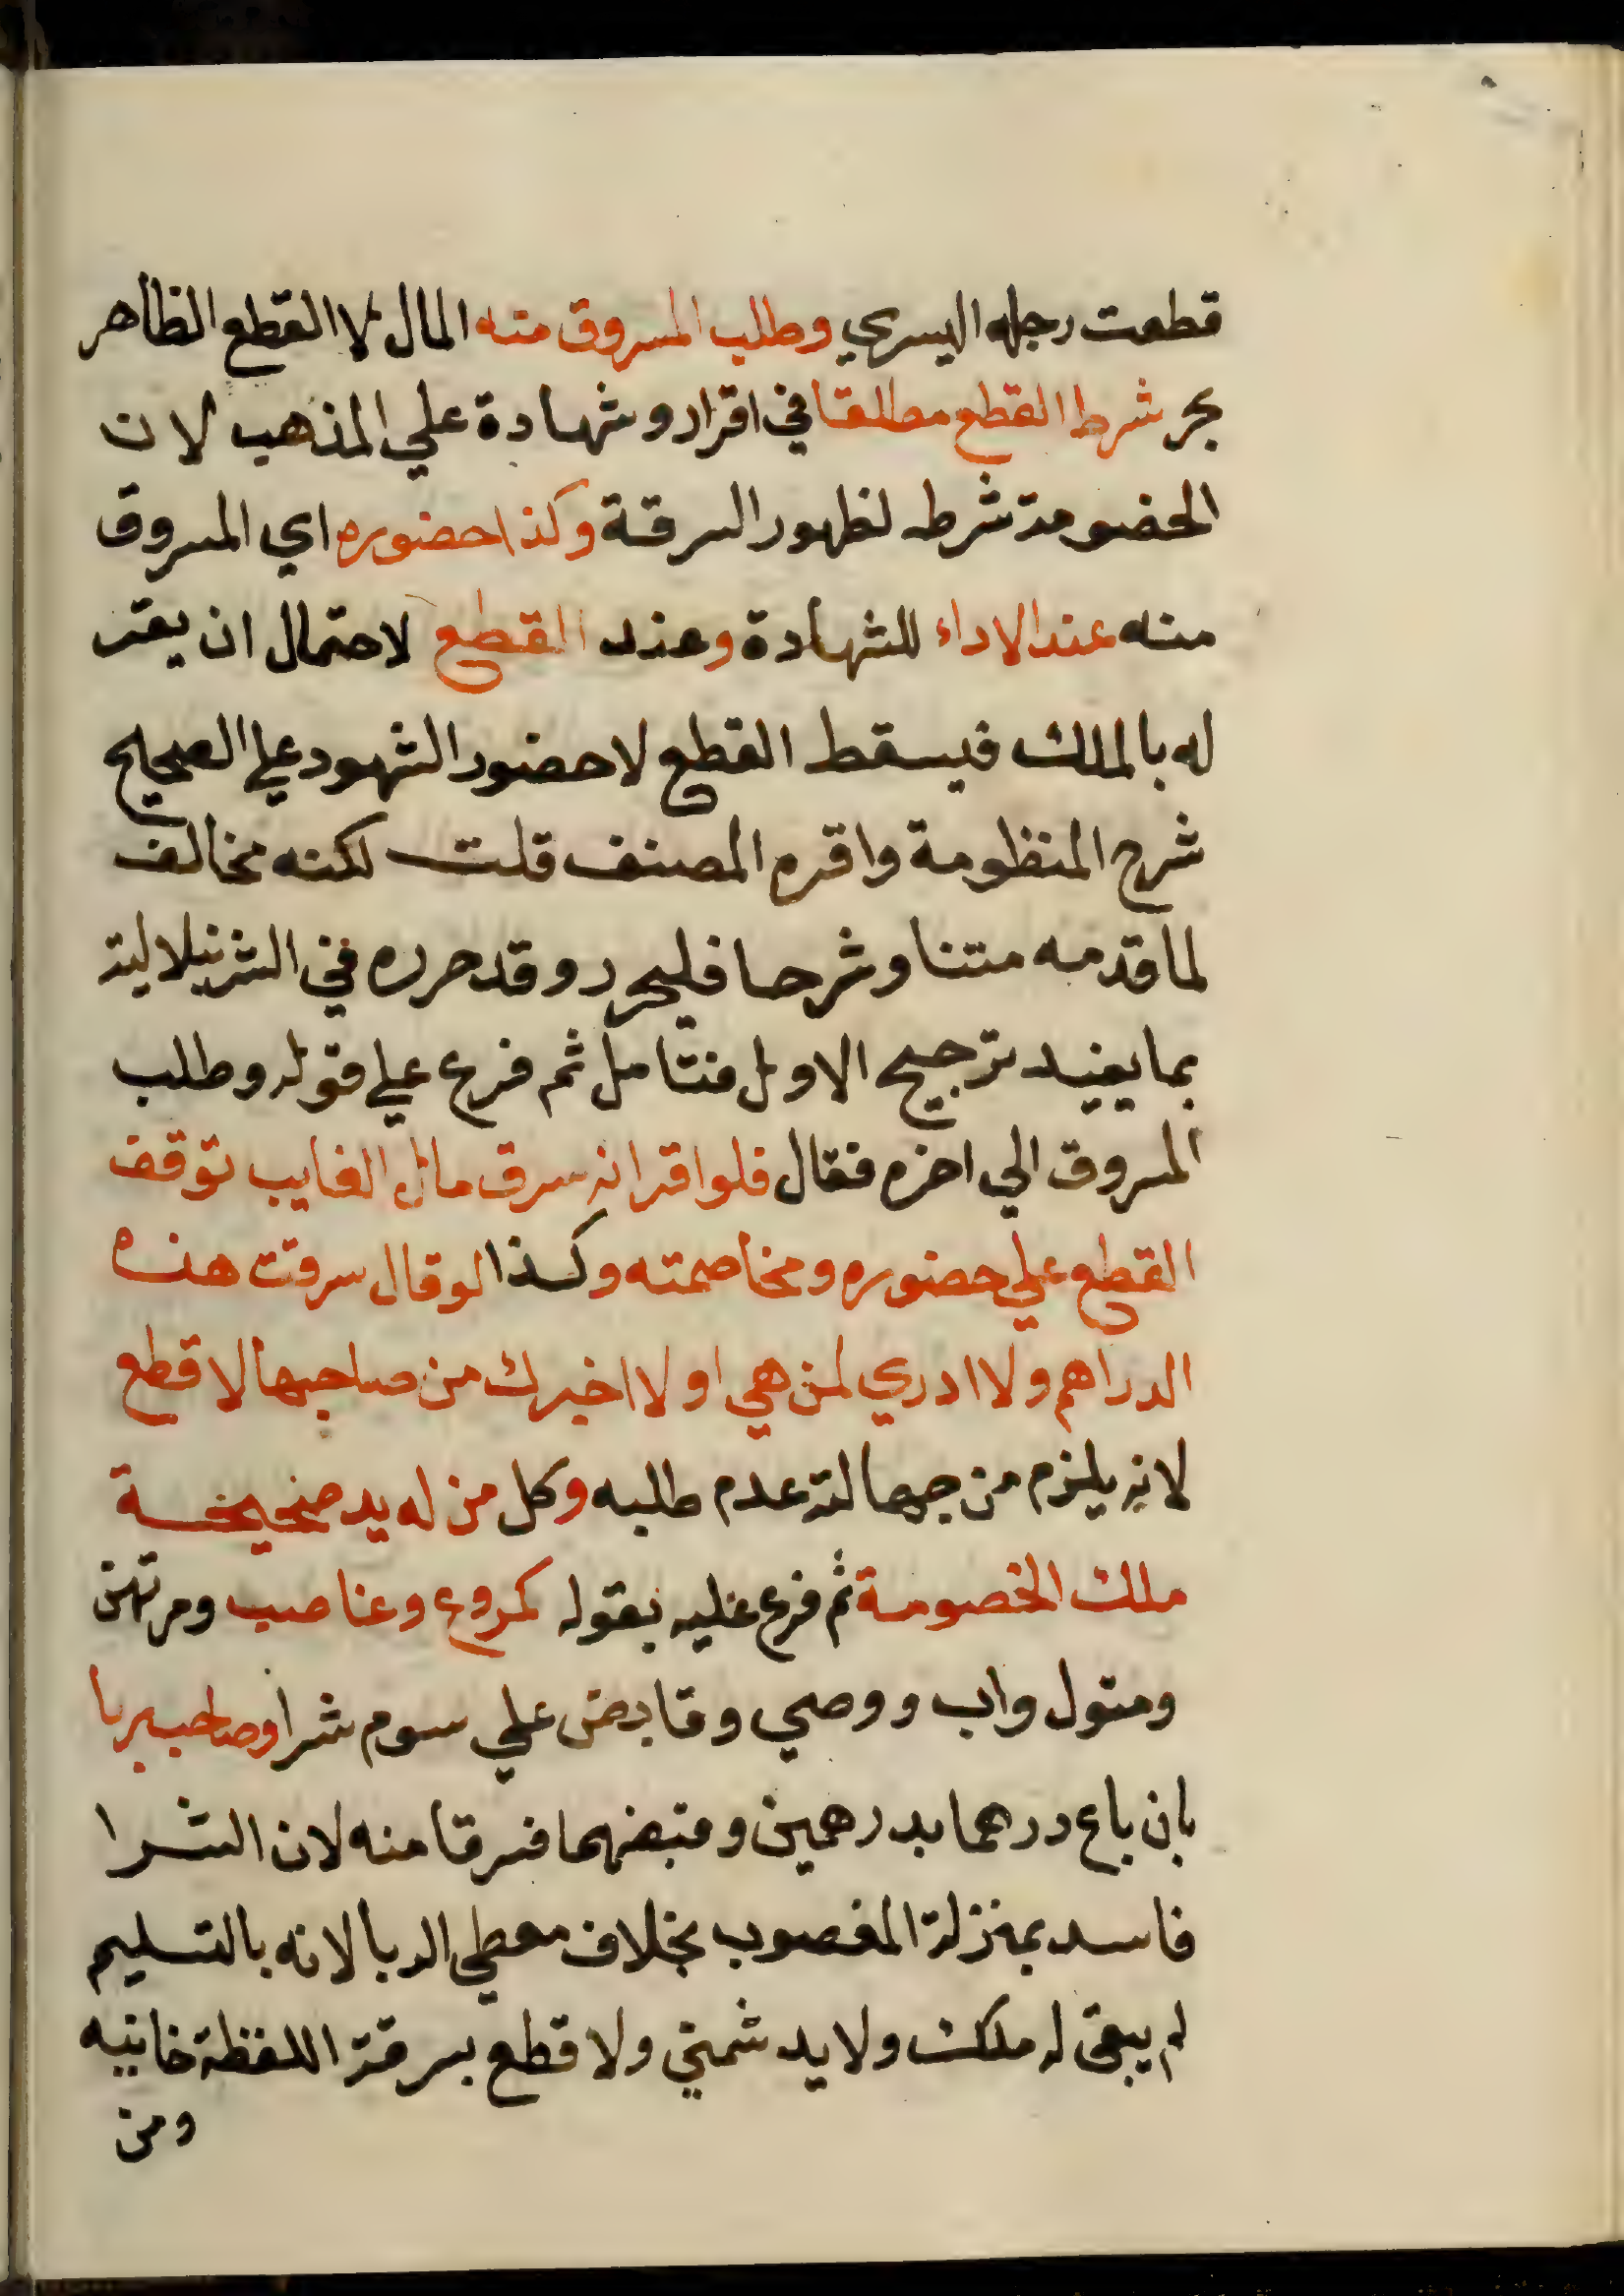 قطعت رجله اليسري وطلب المسروق منه المال لا القطع الظاهر
بحر شرط القطع مطلقا في اقرار وشهادة علي المذهب لان
الخصومة شرط لظهور السرقة وكذا حضوره اي المسروق
منه عند الاداء للشهادة وعند القطع لاحتمال ان يقر
له بالملك فيسقط القطع لا حضور الشهود علي الصحيح
شرح المنظومة واقره المصنف قلت لكنه مخالف
لما قدمه متنا وشرحا فليحرر وقد حرره في الشرنبلالية
بما يفيد ترجيح الاول فتامل ثم فرع علي قوله وطلب
المسروق الي اخره فقال فلو اقر انه سرق مال الغايب توقف
القطع علي حضوره ومخاصمته وكذا لو قال سرقت هذه
الدراهم ولا ادري لمن هي او لا اخبرك من صاحبها لا قطع
لانه يلزم من جهالته عدم طلبه وكل من له يد صحيحة
ملك الخصومة ثم فرع عليه بقوله كمودع وغاصب ومرتهن
ومتول واب ووصي وقابض علي سوم شرا وصاحب ربا
بان باع درهما بدرهمين وقبضهما فسرقا منه لان الشرا
فاسد بمنزلة المغصوب بخلاف معطي الربا لانه بالتسليم
لم يبقي له ملك ولا يد شمني ولا قطع بسرقة اللقطة خانيه
ومن